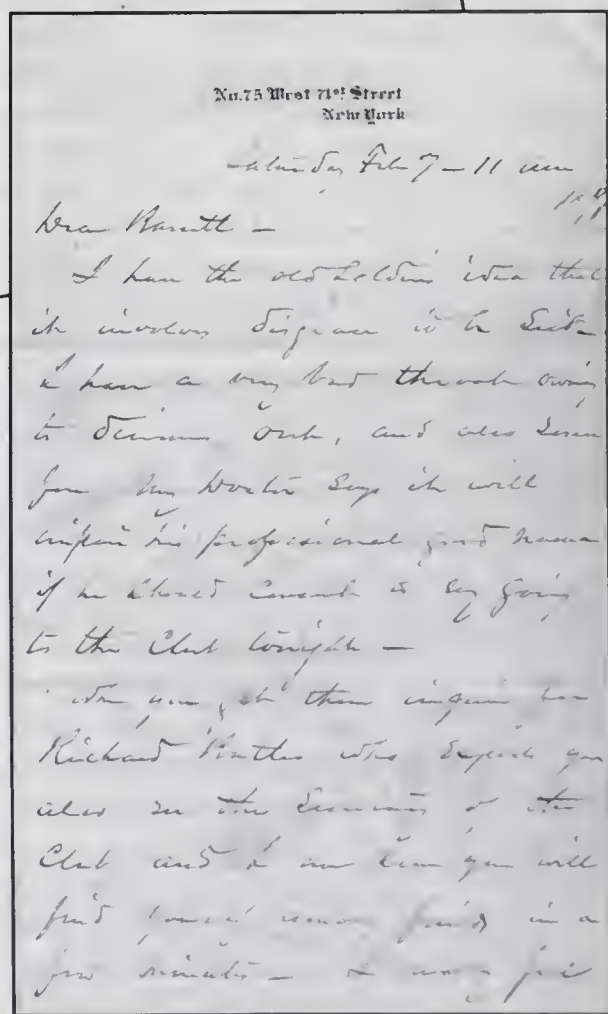 No. 75 West 71st Street
New York
Saturday Feb 7 – 11 am
Dear Barrett –
I have the old idea that
it involves disgrace to be sick
I have a very bad throat owing
to and also
My Doctor says it will
impair his professional good name
if he should consent to my going
to the Club tonight –
When you get there inquire for
Richard Butler who expects you
also see the Secretary of the
Club and I am sure you will
find yourself among friends in a
few minutes –